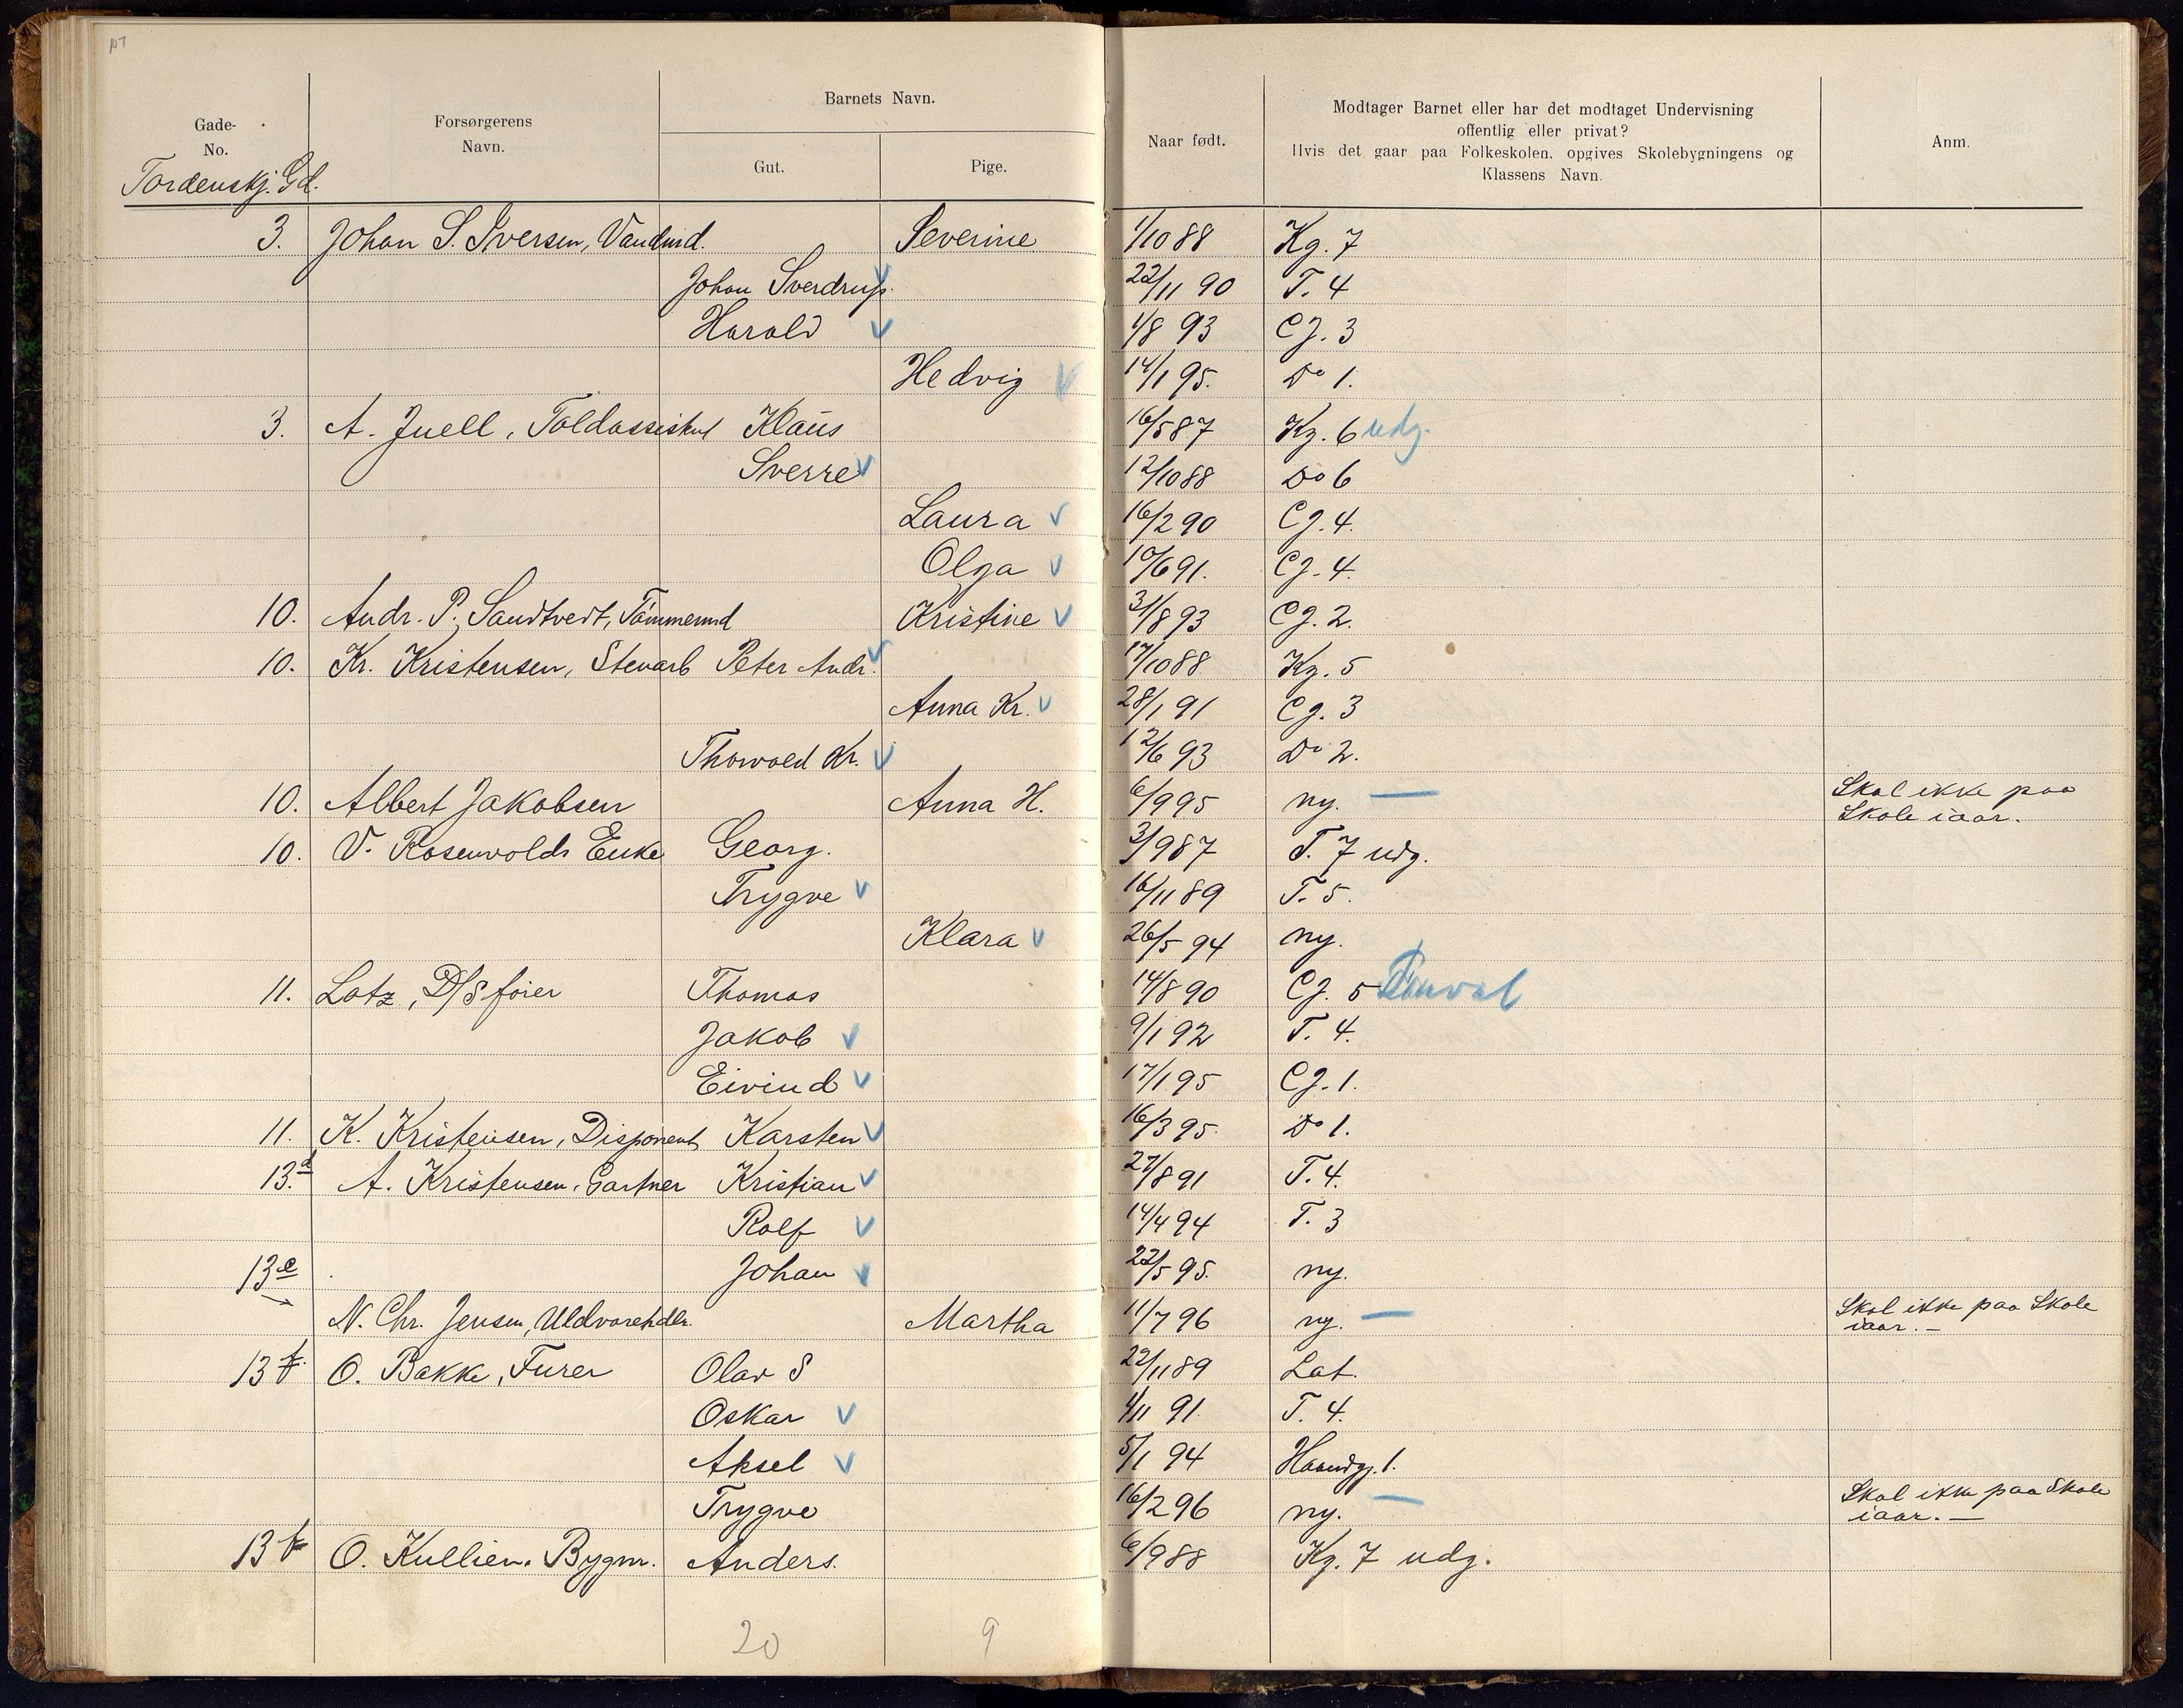 Barnets Navn.
Gade-
No.
Forsørgerens
Navn.
Gut.
Pige.
Naar født.
Modtager Barnet eller har det modtaget Undervisning
offentlig eller privat?
Hvis det gaar paa Folkeskolen, opgives Skolebygningens og
Klassens Navn.
Anm.
Tordenskj. Gd.
3. Johan S. Iversen, Vandmd. Severine 1/10 88 Kg. 7
Johan Sverdrup. 22/11 90 T. 4
Harald 1/8 93 Cg. 3
Hedvig 14/1 95. Do 1.
3. A. Juell, Toldassistent Klaus 16/5 87 Kg. 6 udg.
Sverre 12/10 88 Do 6
Laura 16/2 90 Cg. 4.
Olga 10/6 91. Cg. 4.
10. Andr. P. Sandtvedt, Tømmermd Kristine 31/8 93 Cg. 2.
10. Kr. Kristensen, Stevard Peter Andr. 17/10 88 Kg. 5
Anna Kr. 28/1 91 Cg. 3
Thorvald Kr. 12/6 93 Do 2.
10. Albert Jakobsen Anna H. 6/9 95 ny. — Skal ikke paa
Skole iaar.
10. V. Rosenvolds Enke Georg. 3/9 87 T. 7 udg.
Trygve 16/11 89 T. 5.
Klara 26/5 94 ny.
11. Lotz, D/S fører Thomas 14/8 90 Cg. 5
Jakob 9/1 92 T. 4.
Eivind 17/1 95 Cg. 1.
11. K. Kristensen, Disponent Karsten 16/3 95. Do 1.
13. A. Kristensen, Gartner Kristian 27/8 91 T. 4.
Rolf 14/4 94 T. 3
13e Johan 22/5 95. ny.
N. Chr. Jensen, Uldvarehdlr. Martha 11/7 96 ny. — Skal ikke paa Skole
iaar. —
13f O. Bakke, Furer Olav S 22/11 89 Lat.
Oskar 1/11 91 T. 4.
Aksel 5/1 94 Haandgj. 1.
Trygve 16/2 96 ny. — Skal ikke paa Skole
iaar. —
13f O. Kullien, Bygm. Anders. 6/9 88 Kg. 7 udg.
20 9